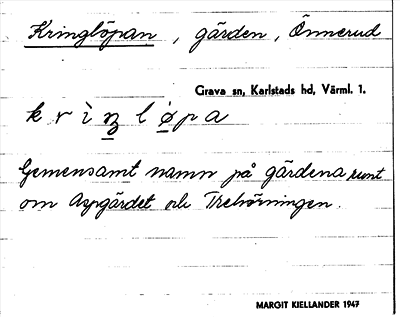 Kringlöpan, gärden, Önnerud
Grava sn, Karlstads hd, Värml. 1.
k r ì ŋ l ø̀ p a
Gemensamt namn på gärdena runt
om Aspgärdet och Trehörningen.
MARGIT KIELLANDER 1947